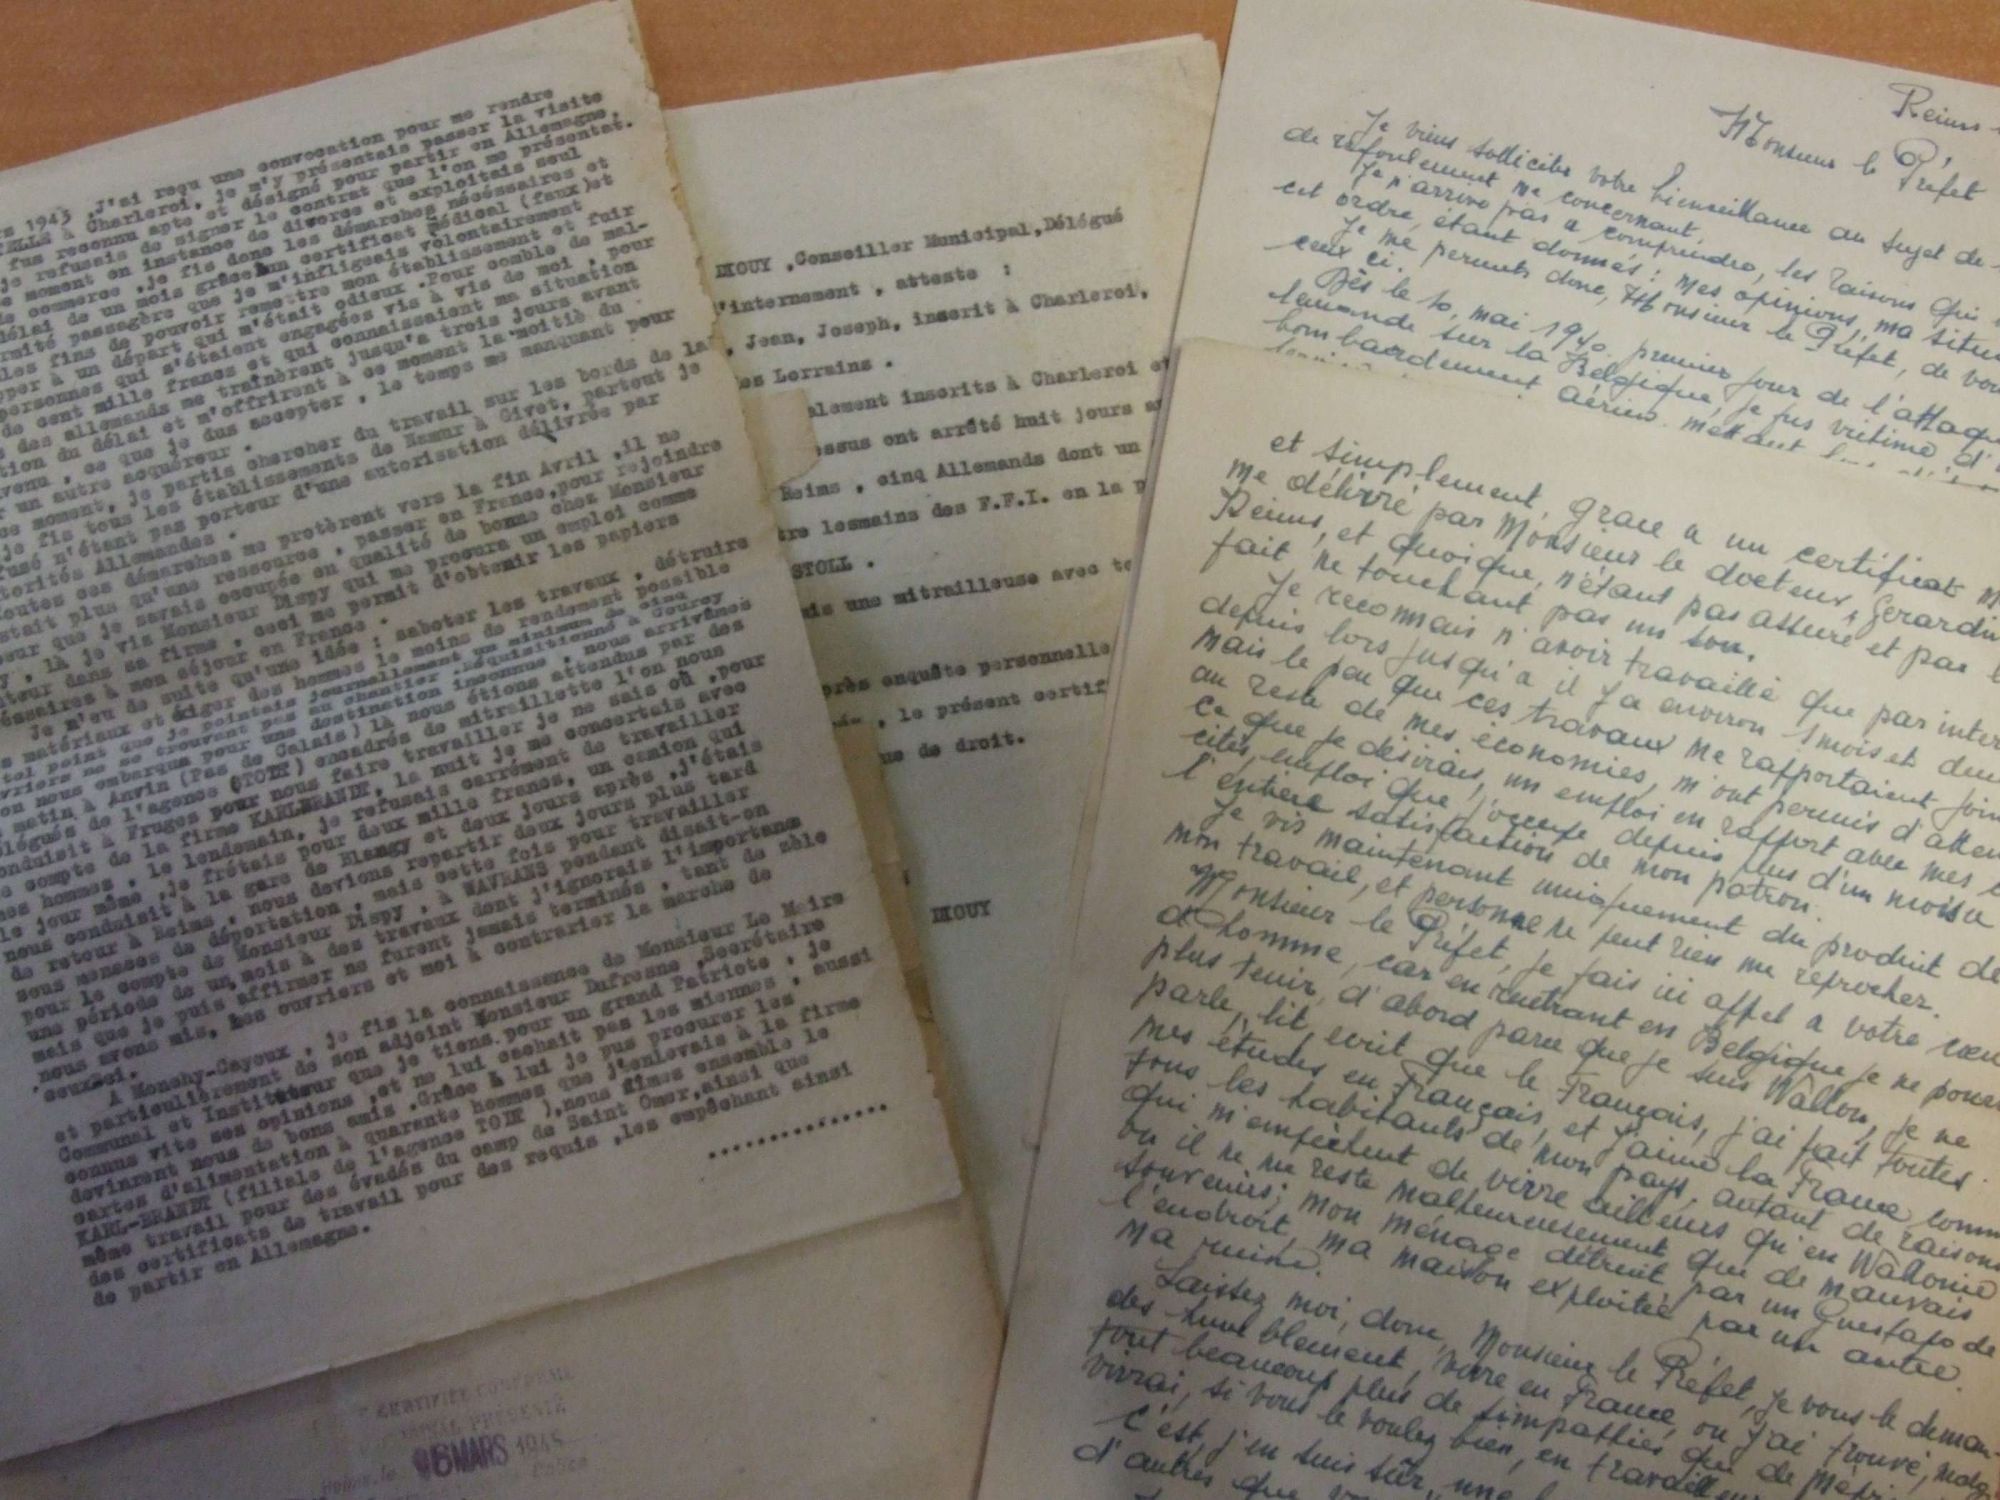 rs 1943 ,J'ai reçu une convocation pour me rendre
à Charleroi, je m'y présentais passer la visite
fus reconnu apte et désigné pour partir en Allemagne,
je refusais de signer le contrat que l'on me présentat.
ce moment en instance de divorce et exploitais seul
de commerce ,je fis donc les démarches nécéssaires et
délai de un mois grâce à un certificat médical (faux)et
rmité passagère que je m'infligeais volontairement
les fins de pouvoir remettre mon établissement et fuir
pper à un départ qui m'était odieux .Pour comble de mal-
personnes qui s'étaient engagées vis à vis de moi , pour
de cent mille francs et qui connaissaient ma situation
des allemands me traînèrent jusqu'à trois jours avant
tion du délai et m'offrirent à ce moment la moitié du
venu , ce que je dus accepter , le temps me manquant pour
r un autre acquéreur .
ce moment, je partis chercher du travail sur les bords de la
je fis tous les établissements de Namur à Givet, partout je
fusé n'étant pas porteur d'une autorisation délivrée par
torités Allemandes .
toutes ces démarches me protèrent vers la fin Avril ,il ne
stait plus qu'une ressource , passer en France,pour rejoindre
oeur que je savais occupée en qualité de bonne chez Monsieur
y , là je vis Monsieur Dispy qui me procura un emploi comme
teur dans sa firme , ceci me permit d'obtenir les papiers
essaires à mon séjour en France .
Je n'eu de suite qu'une idée : saboter les travaux , détruire
s matériaux et éxiger des hommes le moins de rendement possible
tel point que je pointais journellement un minimum de cinq
vriers ne se trouvant pas au chantier .Réquisitionné à Courcy
on nous embarqua pour une destination inconnue , nous arrivâmes
matin à Anvin (Pas de Calais) là nous étions attendus par des
élégués de l'agence (TODT) encadrés de mitraillette l'on nous
onduisit à Fruges pour nous faire travailler je ne sais où ,pour
e compte de la firme KARLBRANDT, la nuit je me concertais avec
mes hommes , le lendemain, je refusais carrément de travailler
le jour même ,je frétais pour deux mille francs, un camion qui
nous conduisit à la gare de Blangy et deux jours après ,j'étais
de retour à Reims , nous devions repartir deux jours plus tard
sous menaces de déportation , mais cette fois pour travailler
pour le compte de Monsieur Dispy , à WAVRANS pendant disait-on
une période de un mois à des travaux dont j'ignorais l'importance
mais que je puis affirmer ne furent jamais terminés , tant de zèle
nous avons mis, mes ouvriers et moi à contrarier la marche de
ceux-ci.
A Monchy-Cayeux , je fis la connaissance de Monsieur Le Maire
et particulièrement de son adjoint Monsieur Dufresne ,Secrétaire
Communal et Instituteur que je tiens pour un grand Patriote , je
connus vite ses opinions ,et ne lui cachait pas les miennes , aussi
devinrent nous de bons amis .Grâce à lui je pus procurer les
cartes d'alimentation à quarante hommes que j'enlevais à la firme
KARL-BRANDT (filiale de l'agence TODT ),nous fîmes ensemble le
même travail pour des évadés du camp de Saint Omer,ainsi que
des certificats de travail pour des requis ,les empêchant ainsi
de partir en Allemagne.
...............
CERTIFIÉE CONFORME
PRÉSENTÉ
MARS 1945
Police
DIOUY ,Conseiller Municipal,Délégué
'internement , atteste :
, Jean, Joseph, inscrit à Charleroi,
es Lorrains .
alement inscrits à Charleroi et
essus ont arrêté huit jours a
Reims , cinq Allemands dont un
tre lesmains des F.F.I. en la p
STOLL .
is une mitrailleuse avec to
près enquête personnelle
, le présent certif
ue de droit.
DIOUY
Reims
Monsieur le Préfet
Je viens solliciter votre bienveillance au sujet de
de refoulement me concernant.
Je n'arrive pas à comprendre, les raisons qui
cet ordre, étant donnés: mes opinions, ma situa
Je me permets donc, Monsieur le Préfet, de vou
ceux ci.
Dès le 10, mai 1940. premier jour de l'attaque
lemande sur la Belgique, je fus victime d'
bombardement aérien. mettant
et simplement, grace a un certificat m
me délivré par Monsieur le docteur, Gerardin
Reims, et quoique, n'étant pas assuré et par l
fait ne touchant pas un sou.
Je reconnais n'avoir travaillé que par inter
depuis lors jusqu'à il y a environ 1 mois et dem
mais le peu que ces travaux me rapportaient join
au reste de mes économies, m'ont permis d'atten
ce que je désirais, un emploi en rapport avec mes c
cités, emploi que j'occupe depuis plus d'un mois a
l'entière satisfaction de mon patron.
Je vis maintenant uniquement du produit de
mon travail, et personne ne peut rien me reprocher.
Monsieur le Préfet, je fais ici appel a votre coeu
d'homme, car en rentrant en Belgique je ne pour
plus tenir, d'abord parce que je suis Wallon, je ne
parle, lit, ecrit que le Français, j'ai fait toutes
mes études en Français, et j'aime la France comme
tous les habitants de mon pays, autant de raisons
qui m'empèchent de vivre ailleurs qu'en Wallonie
ou il ne me reste malheureusement que de mauvais
souvenirs; mon ménage détruit par un Guestapo de
l'endroit, ma maison exploitée par un autre.
Ma ruine.
Laissez moi, donc, Monsieur le Préfet, je vous le deman-
de humblement, vivre en France, ou j'ai trouvé, malg
tout beaucoup plus de simpathies que de mépri
vivrai, si vous le voulez bien, en travaill
C'est, j'en suis sûr, une
d'autres que vo